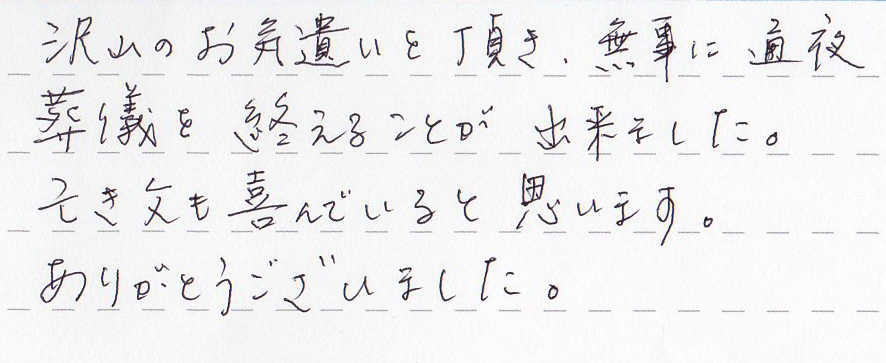 沢山のお気遣いを頂き、無事に通夜
葬儀を終えることが出来ました。
亡き父も喜んでいると思います。
ありがとうございました。